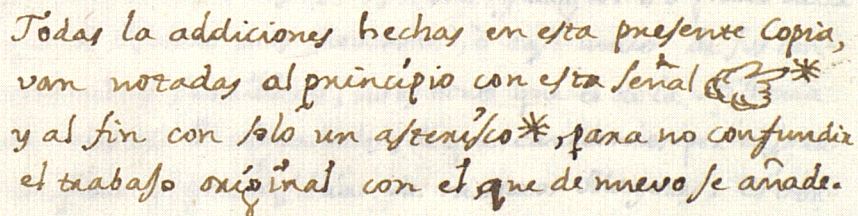 Todas la addiciones hechas en esta presente Copia,
van notadas al principio con esta señal ☞*
y al fin con solo un asterisco*, para no confundir
el trabajo original con el que de nuevo se añade.